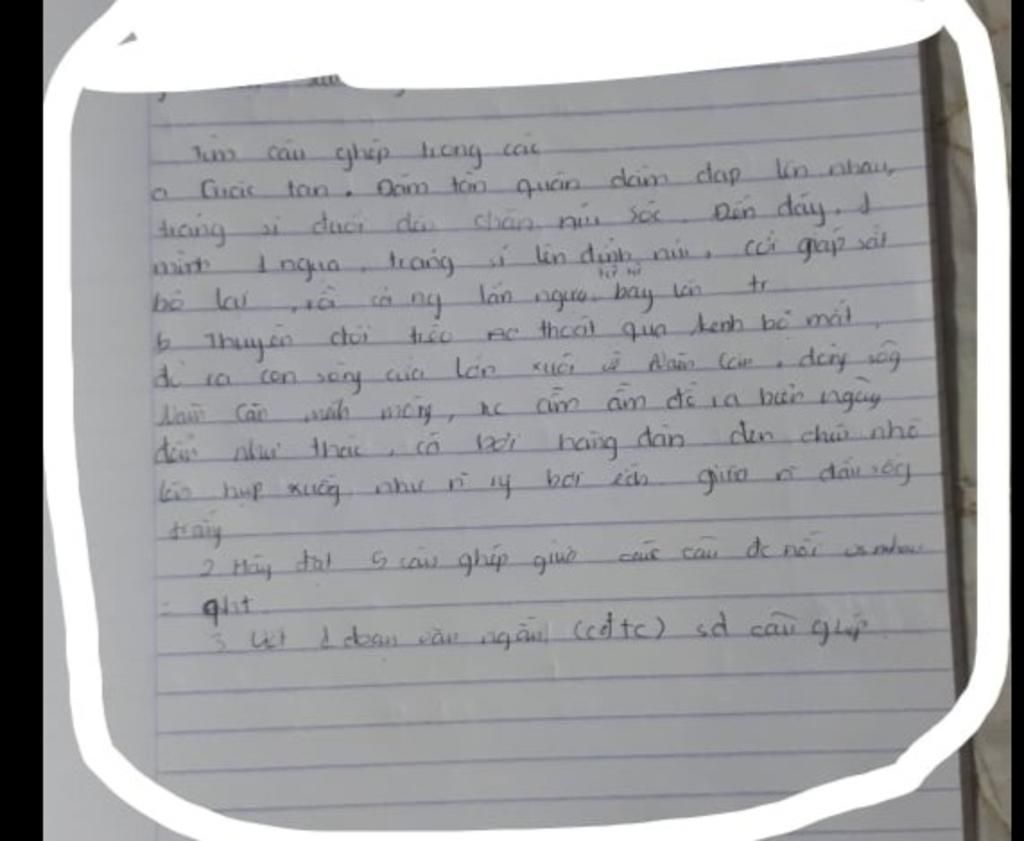 Tìm câu ghép trong các
a Giặc tan. Đám tàn quân dẫm đạp lên nhau,
tráng sĩ đuổi đến chân núi Sóc. Đến đấy, 1
mình 1 ngựa, tráng sĩ lên đỉnh núi, cởi giáp sắt
bỏ lại, rồi cả ng lẫn ngựa bay lên tr
b Thuyền thoát qua kênh bọ mắt,
đổ ra con sông cửa lớn xuôi về Năm Căn. dòng sông
Năm Căn mênh mông, nc ầm ầm đổ ra biển ngày
đêm như thác, cá bơi hàng đàn đen chũi nhô
lên hụp xuống như n ng bơi ếch giữa n đầu sóng
trắng
2 Hãy đặt 5 câu ghép giữa các câu đc nối vs nhau
= qht
3 Viết 1 đoạn văn ngắn (cđtc) sd câu ghép